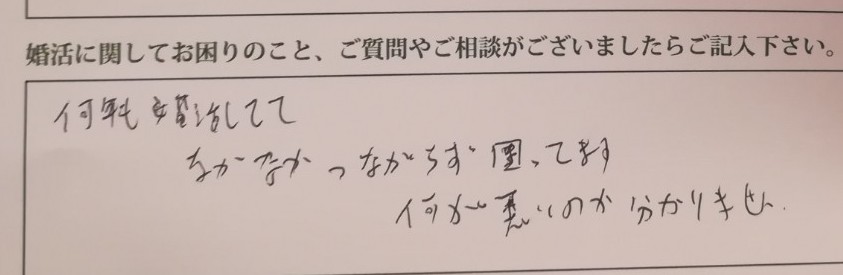 婚活に関してお困りのこと、ご質問やご相談がございましたらご記入下さい。
何年も婚活してて
なかなかつながらず困ってます
何が悪いのか分かりません.